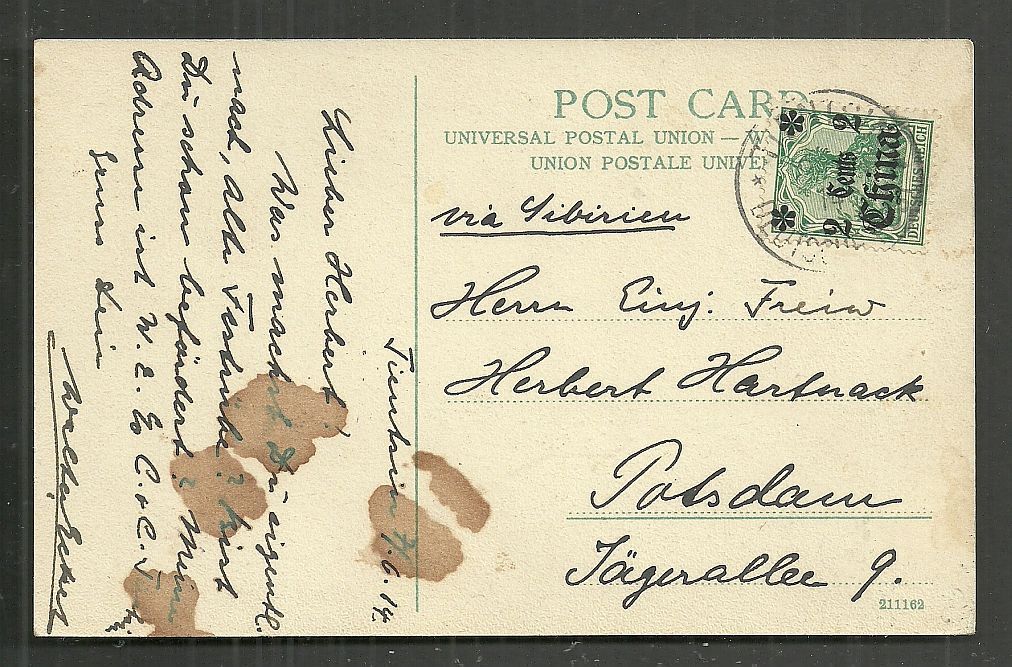 POST CARD
UNIVERSAL POSTAL UNION — W
UNION POSTALE UNIVE
2 Cents 2
China
DEUTSCHES REICH
via Sibirien
Herrn Einj. Freiw
Herbert Hartnack
Potsdam
Jägerallee 9.
211162
Tientsin 6. 14.
Lieber Herbert!
Was machst Du eigentl.
noch, alte Festrübe? bist
Du schon befördert? Meine
Adresse ist W. E. C. & C. T
Gruss Dein
Walter